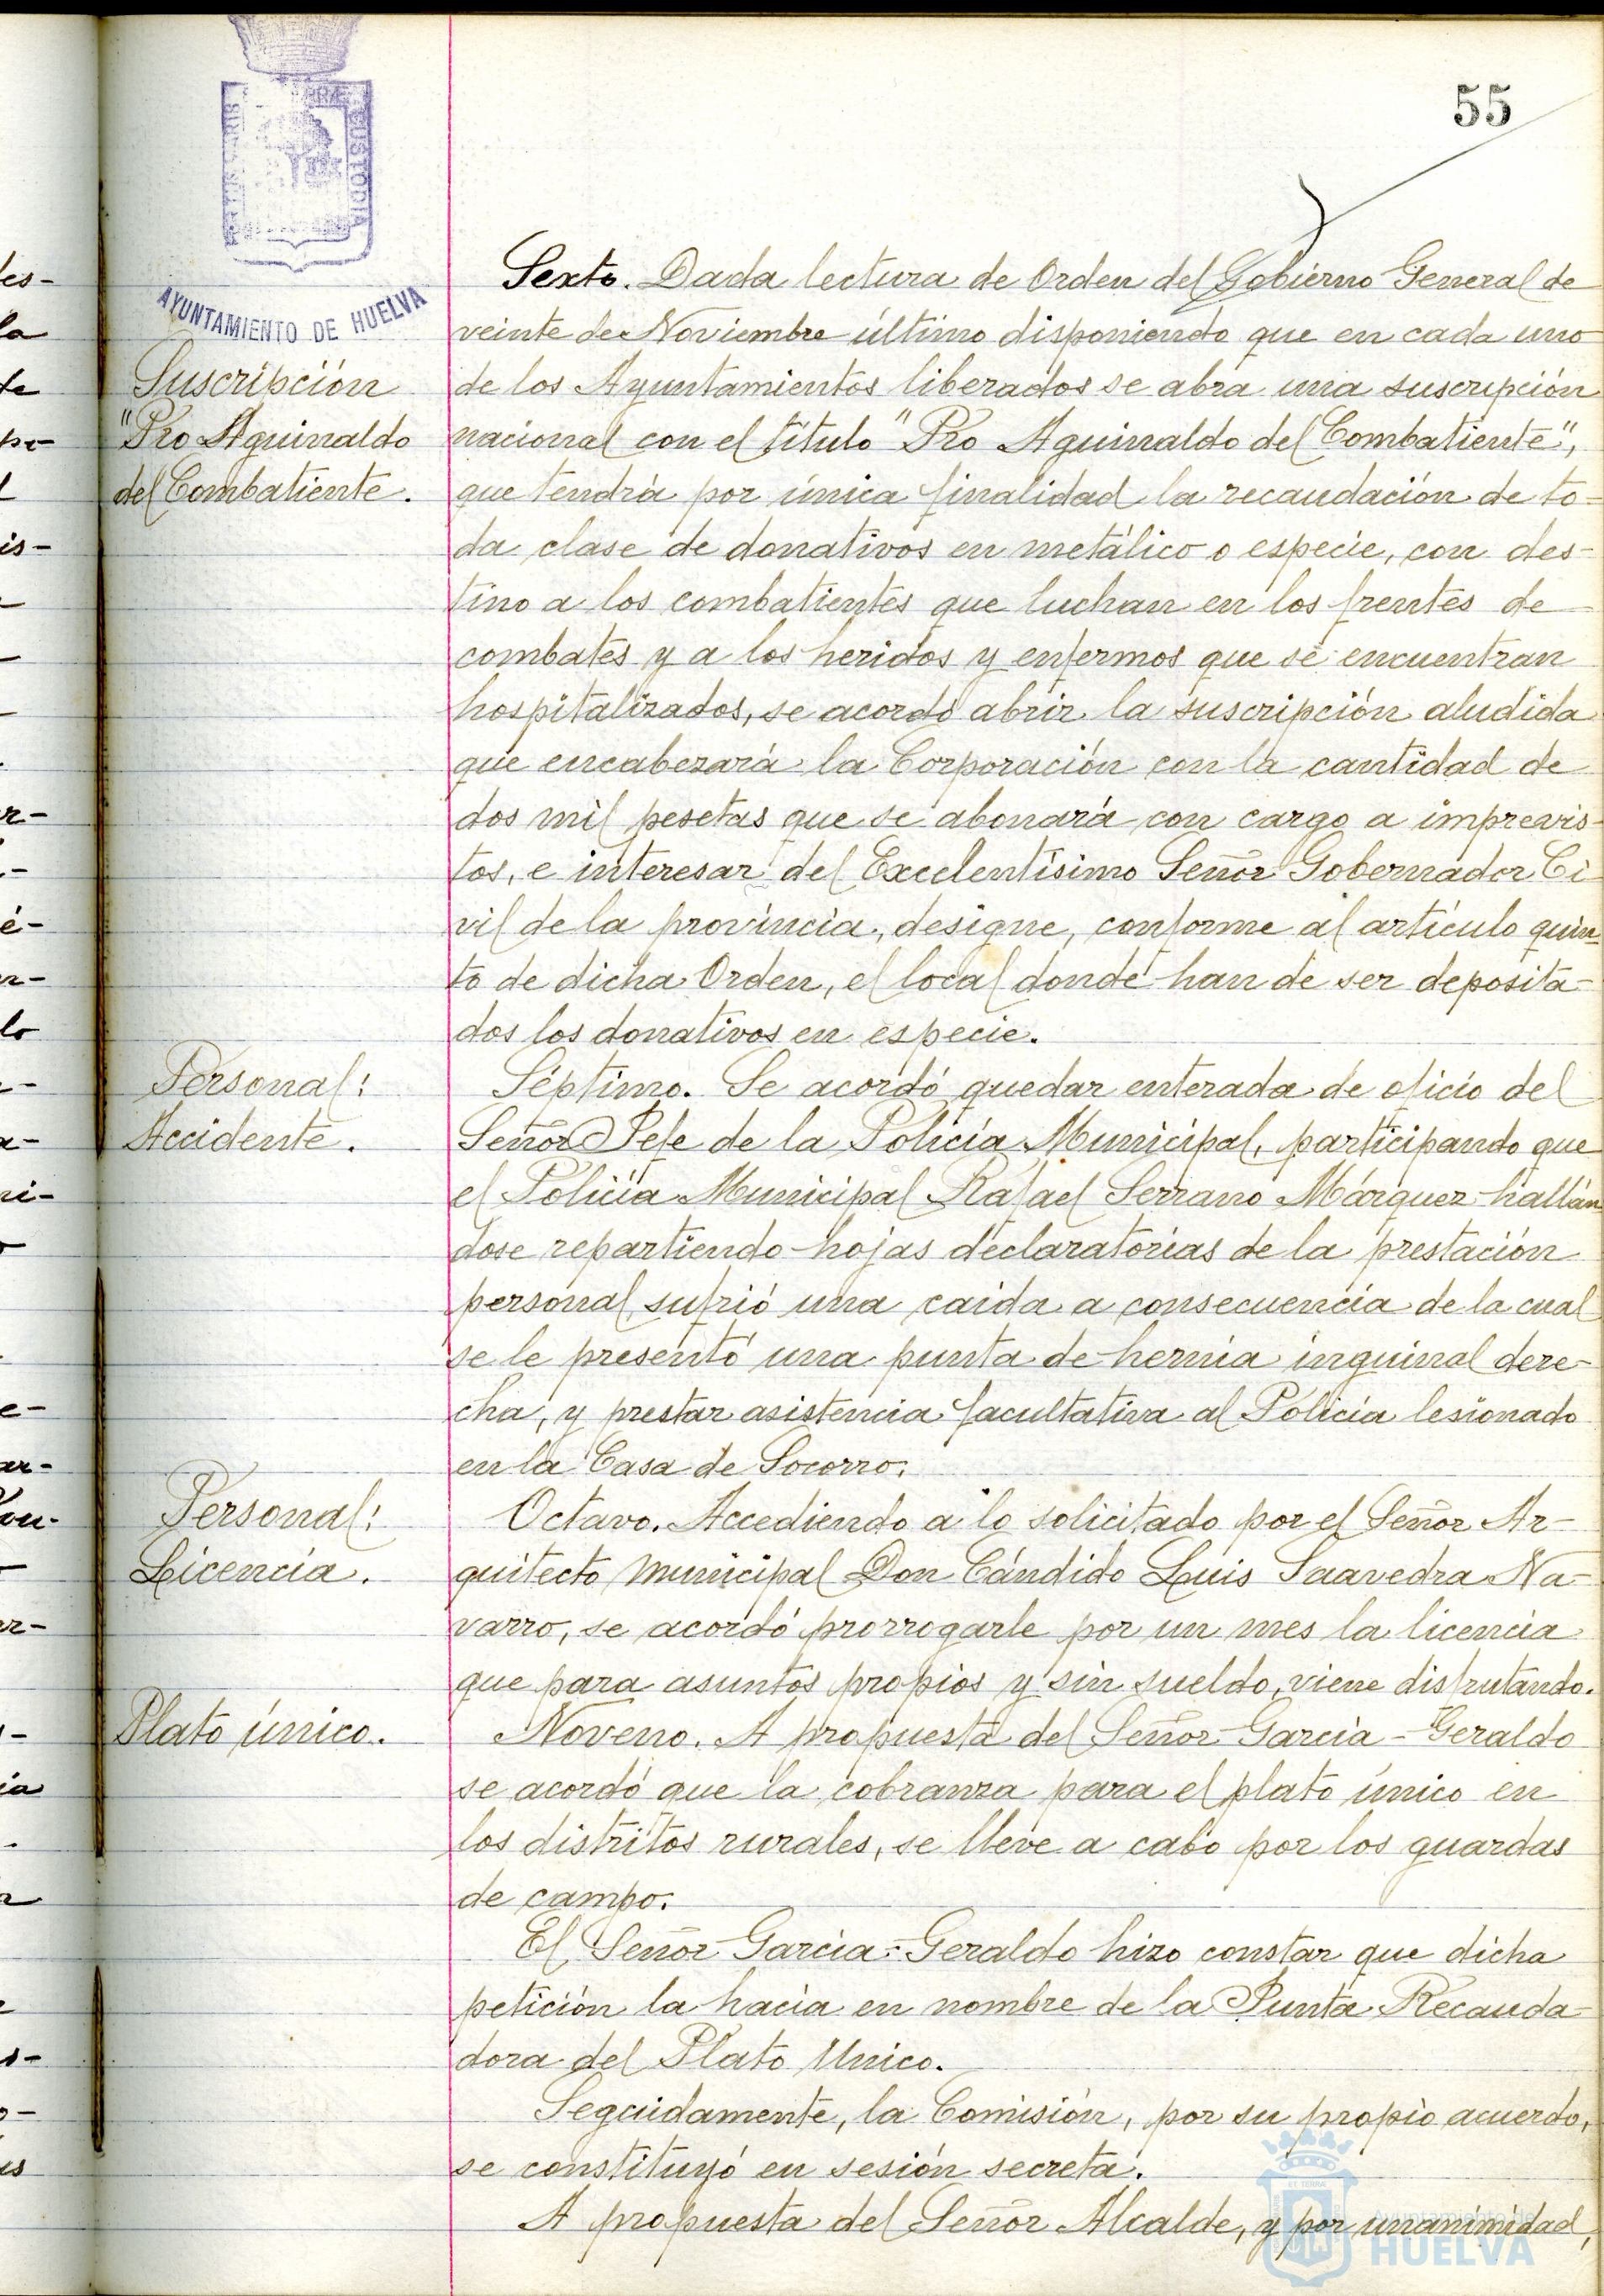 55
PORTUS MARIS ET TERRAE CUSTODIA
AYUNTAMIENTO DE HUELVA
Sexto. Dada lectura de Orden del Gobierno General de
veinte de Noviembre último disponiendo que en cada uno
Suscripción
de los Ayuntamientos liberados se abra una suscripción
"Pro Aguinaldo
nacional con el título "Pro Aguinaldo del Combatiente",
del Combatiente.
que tendrá por única finalidad la recaudación de to-
da clase de donativos en metálico o especie, con des-
tino a los combatientes que luchan en los frentes de
combates y a los heridos y enfermos que se encuentran
hospitalizados, se acordó abrir la suscripción aludida
que encabezará la Corporación con la cantidad de
dos mil pesetas que se abonará con cargo a imprevis-
tos, e interesar del Excelentísimo Señor Gobernador Ci
vil de la provincia, designe, conforme al artículo quin-
to de dicha Orden, el local donde han de ser deposita-
dos los donativos en especie.
Personal:
Accidente.
Séptimo. Se acordó quedar enterada de oficio del
Señor Jefe de la Policía Municipal, participando que
el Policía Municipal Rafael Serrano Márquez hallán
dose repartiendo hojas declaratorias de la prestación
personal sufrió una caida a consecuencia de la cual
se le presentó una punta de hernia inguinal dere-
cha, y prestar asistencia facultativa al Policía lesionado
en la Casa de Socorro.
Personal:
Licencia.
Octavo. Accediendo a lo solicitado por el Señor Ar-
quitecto Municipal Don Cándido Luis Saavedra Na-
varro, se acordó prorrogarle por un mes la licencia
que para asuntos propios y sin sueldo, viene disfrutando.
Plato único.
Noveno. A propuesta del Señor García-Geraldo
se acordó que la cobranza para el plato único en
los distritos rurales, se lleve a cabo por los guardas
de campo.
El Señor García-Geraldo hizo constar que dicha
petición la hacía en nombre de la Junta Recauda-
dora del Plato Unico.
Seguidamente, la Comisión, por su propio acuerdo,
se constituyó en sesión secreta.
A propuesta del Señor Alcalde, y por unanimidad,
Ayuntamiento de
HUELVA